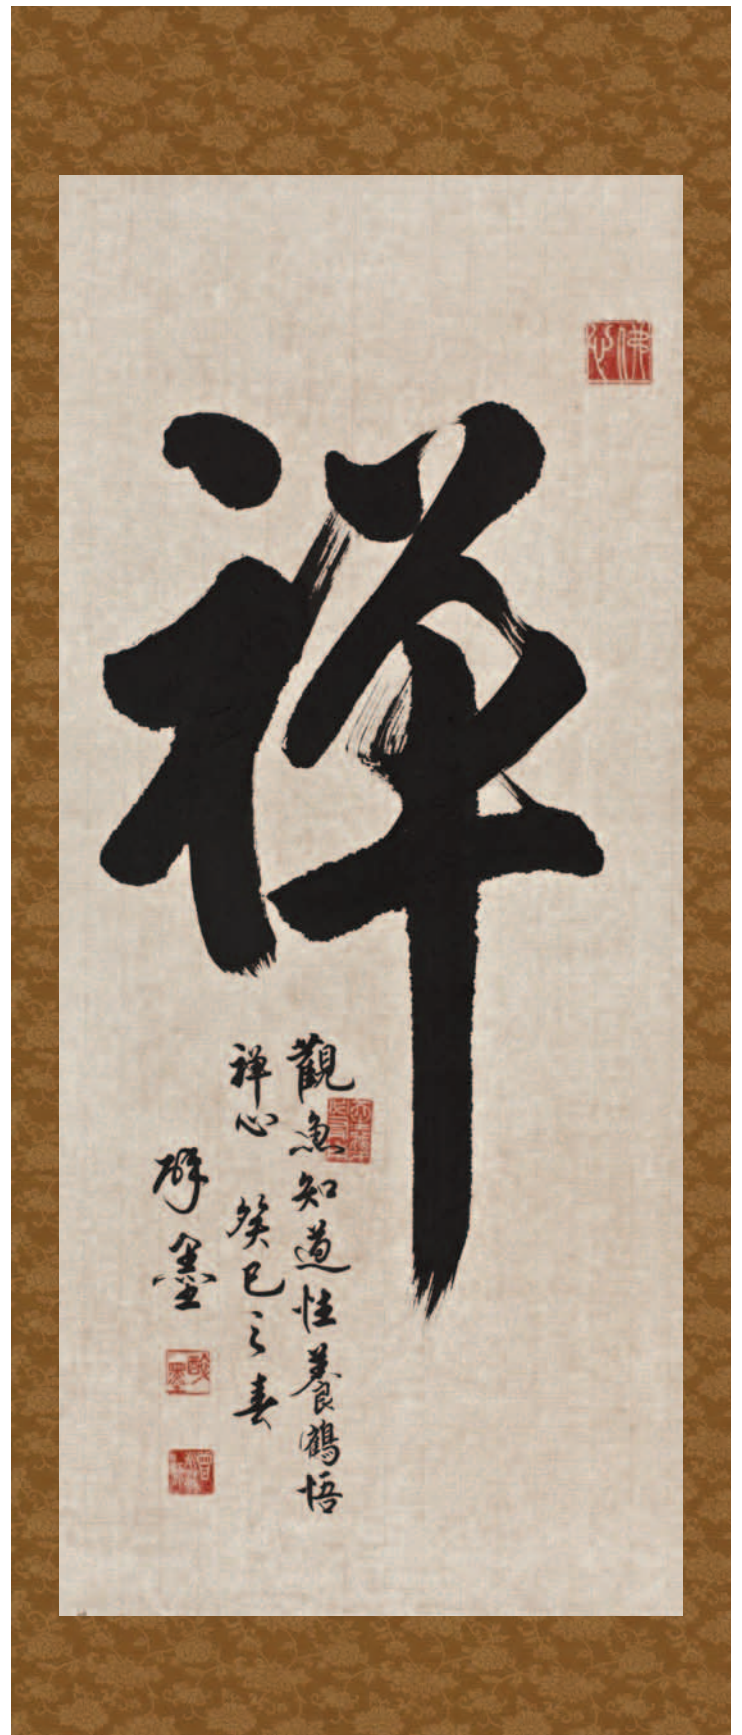 禅
觀魚知道性養鶴悟
禅心 癸巳之春
醉墨
佛心
醉墨